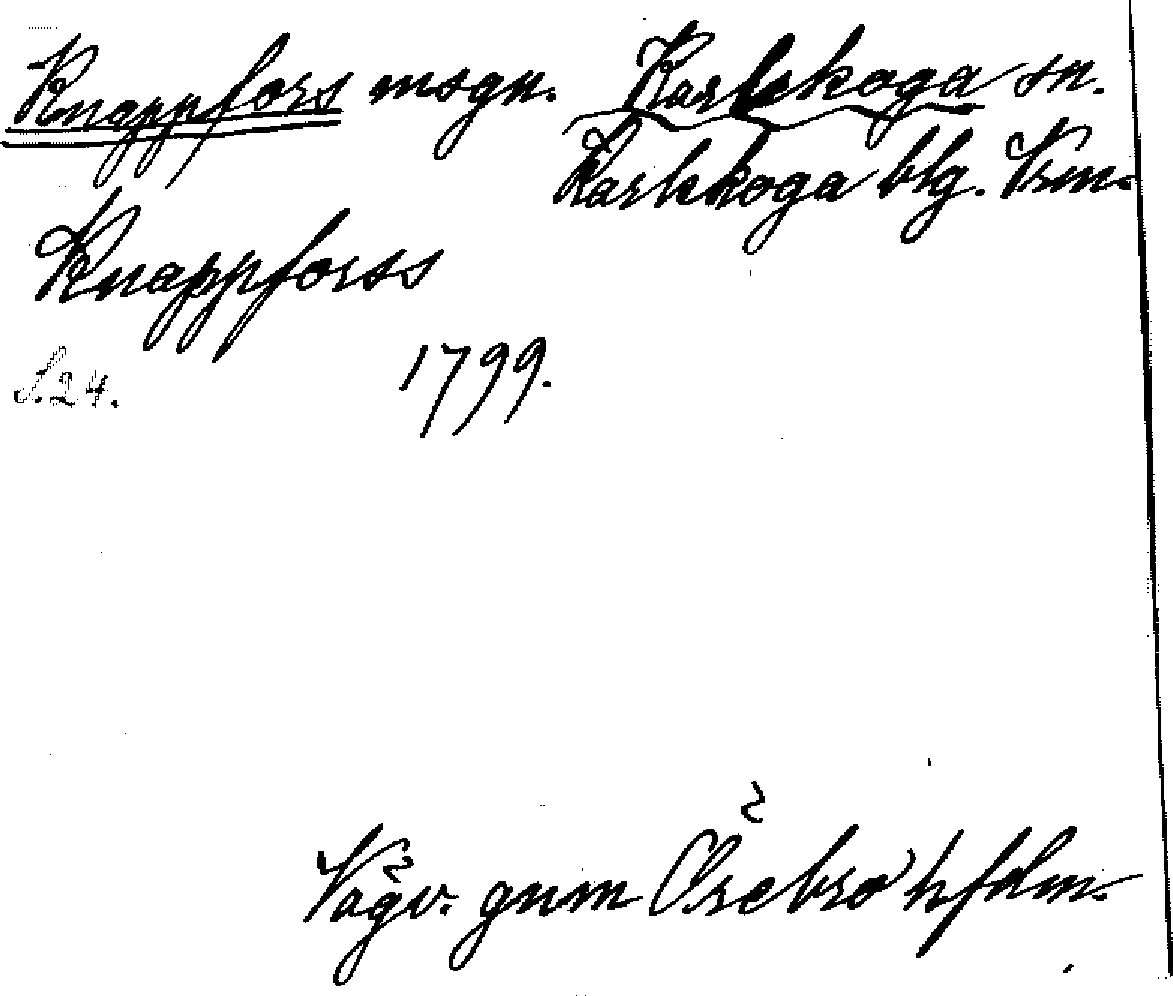 Knappfors msgn. Karlskoga sn.
Karlskoga blg. Vrm.
Knappforss
S. 24. 1799.
Vägv. gnm Örebro hfdm.